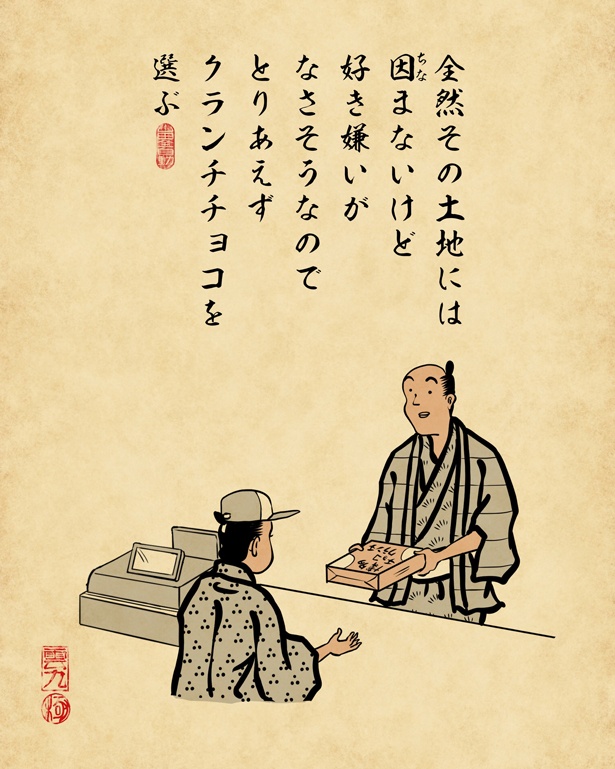 全然その土地には
因まないけど
ちな
好き嫌いが
なさそうなので
とりあえず
クランチチョコを
選ぶ